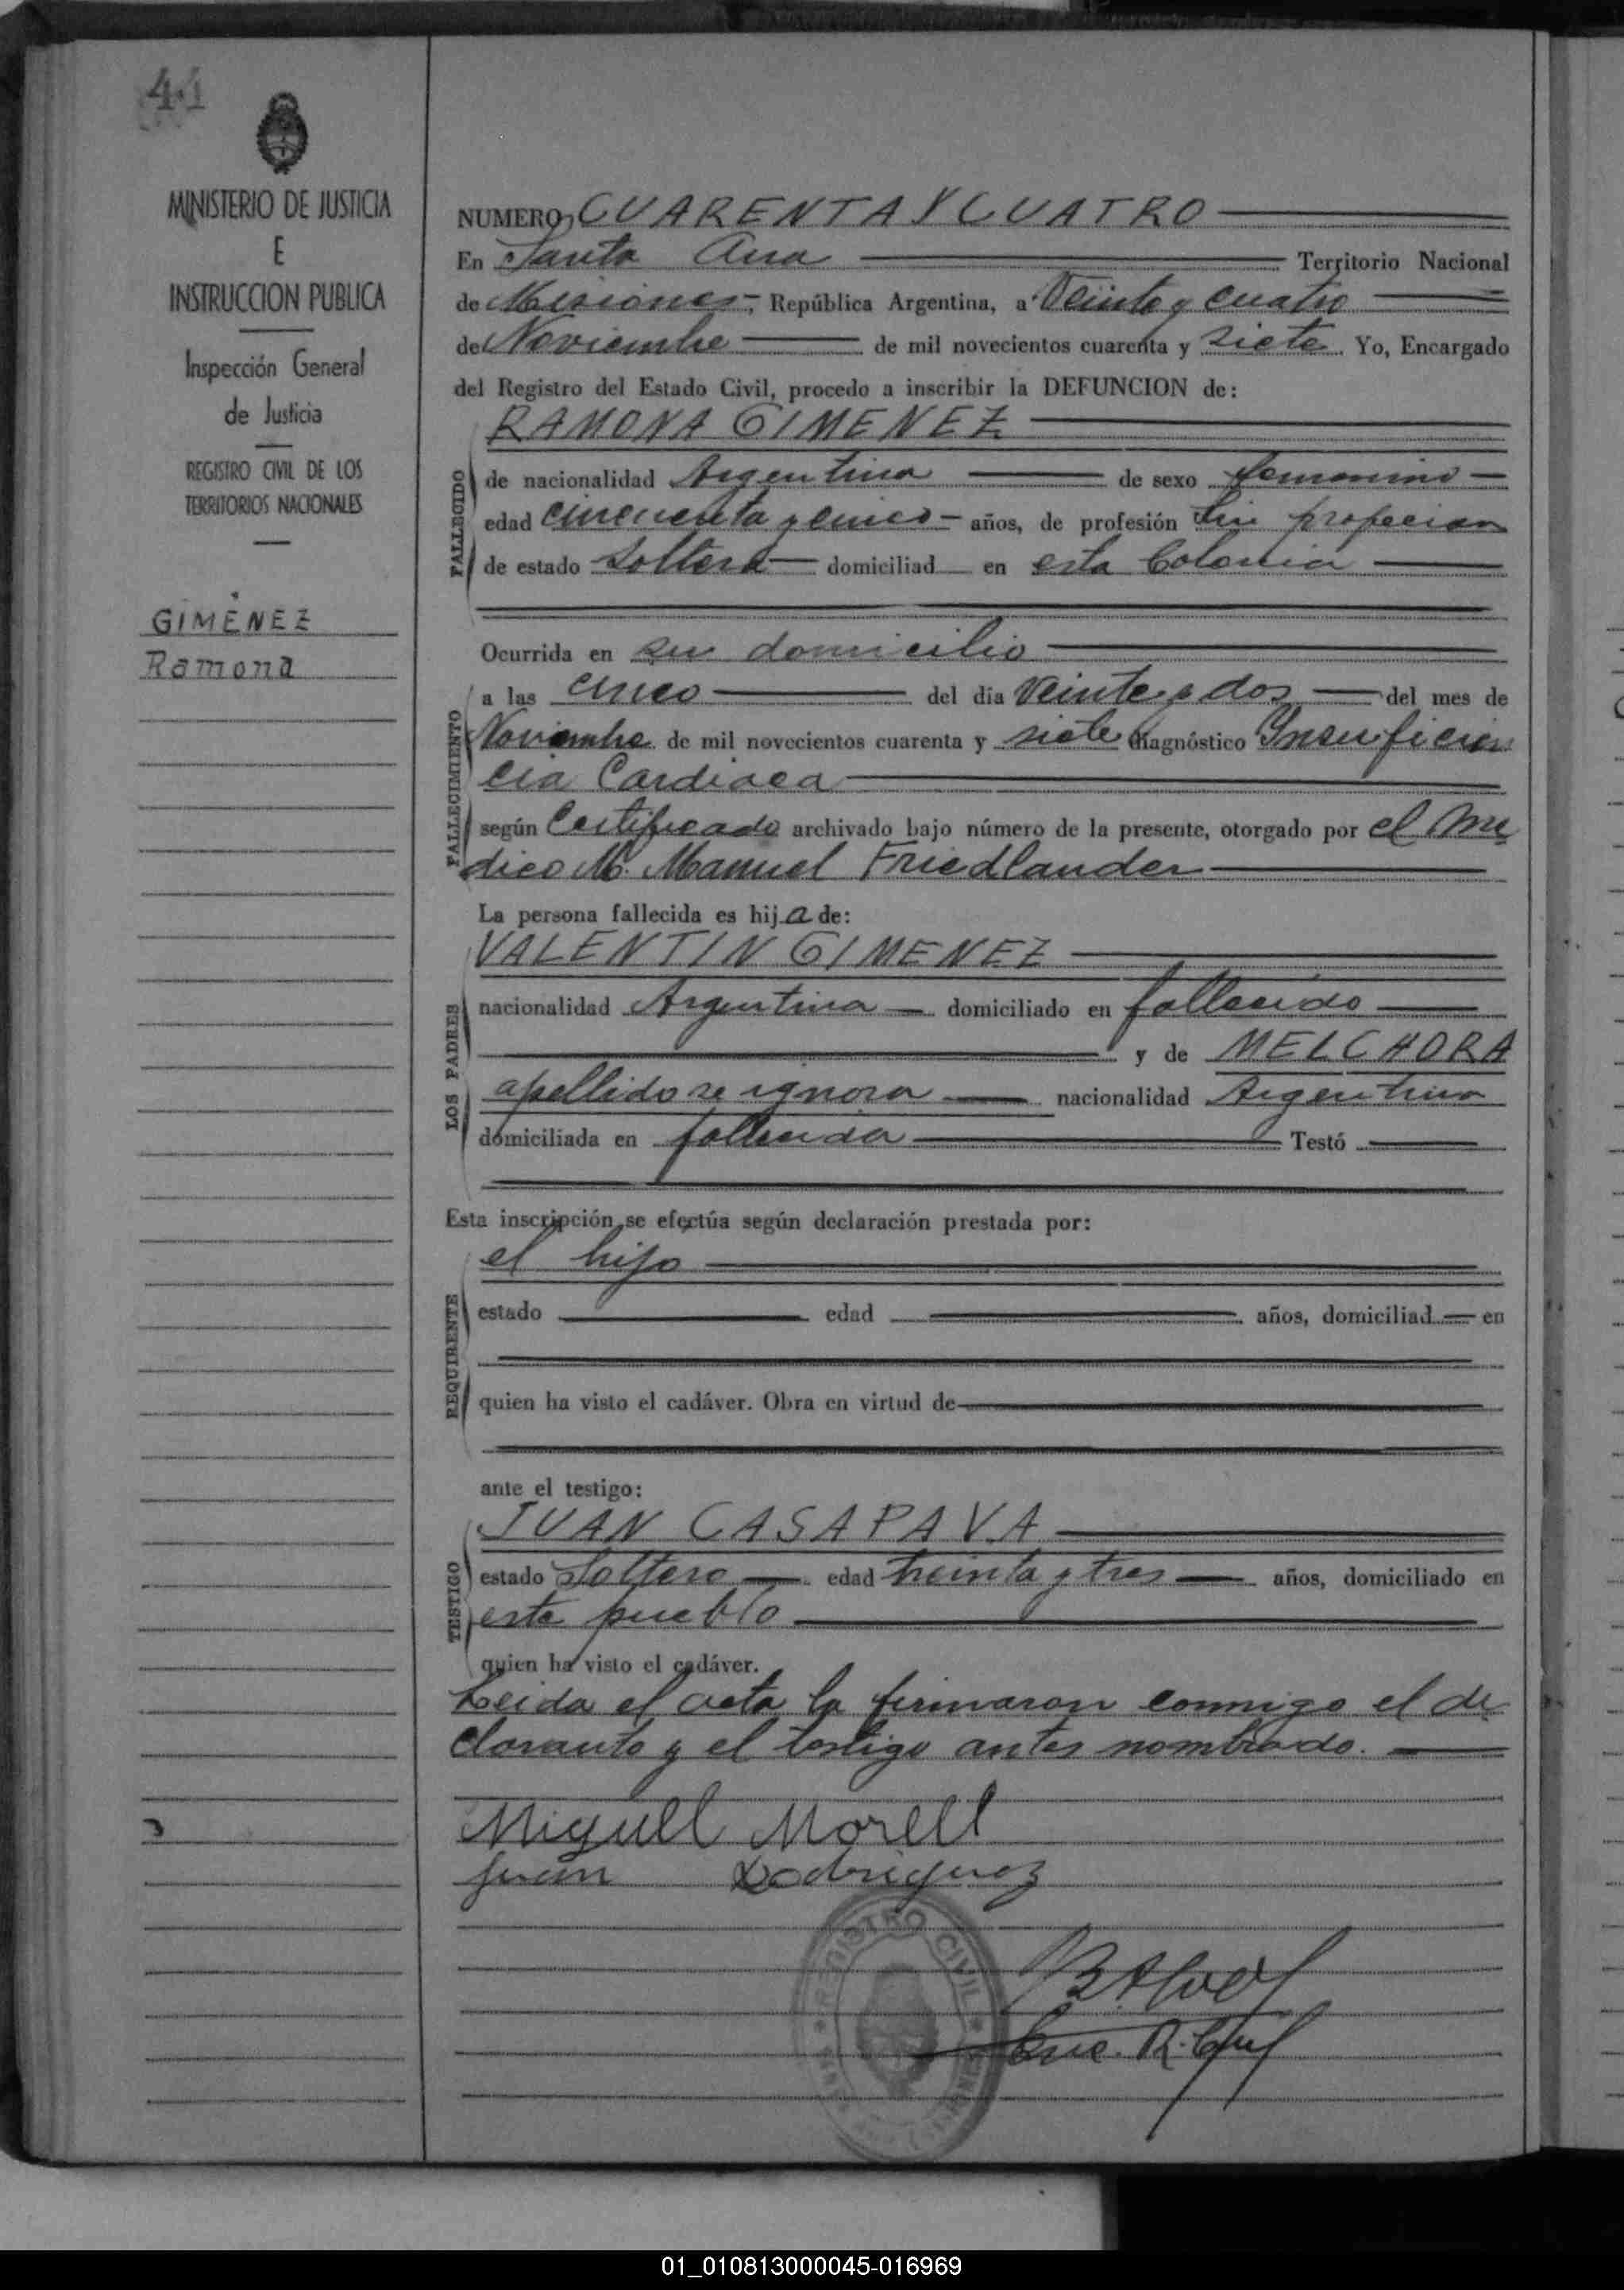 44
MINISTERIO DE JUSTICIA
E
INSTRUCCION PUBLICA
Inspección General
de Justicia
REGISTRO CIVIL DE LOS
TERRITORIOS NACIONALES
GIMÉNEZ
Ramona
NUMERO, CUARENTA Y CUATRO
En Santa Ana Territorio Nacional
de Misiones, República Argentina, a Veinte y cuatro
de Noviembre de mil novecientos cuarenta y siete. Yo, Encargado
del Registro del Estado Civil, procedo a inscribir la DEFUNCION de:
FALLECIDO
RAMONA GIMENEZ
de nacionalidad Argentina de sexo femenino
edad cincuenta y cinco años, de profesión Sin profecion
de estado Soltera domiciliad en esta Colonia
Ocurrida en su domicilio
FALLECIMIENTO
a las cinco del día Veinte y dos del mes de
Noviembre de mil novecientos cuarenta y siete diagnóstico Insuficien
cia Cardiaca
según Certificado archivado bajo número de la presente, otorgado por el Me
dico M. Manuel Friedlander
La persona fallecida es hija de:
LOS PADRES
VALENTIN GIMENEZ
nacionalidad Argentina domiciliado en fallecido
y de MELCHORA
apellido se ignora nacionalidad Argentina
domiciliada en fallecida Testó
Esta inscripción se efectúa según declaración prestada por:
REQUIRENTE
el hijo
estado edad años, domiciliad en
quien ha visto el cadáver. Obra en virtud de
ante el testigo:
TESTIGO
JUAN CASAPAVA
estado Soltero edad treinta y tres años, domiciliado en
este pueblo
quien ha visto el cadáver.
Leida el acta la firmaron conmigo el de
clarante y el testigo antes nombrado.
Miguell Morell
Juan Rodriguez
REGISTRO CIVIL
Enc. R. Civil
01_010813000045-016969